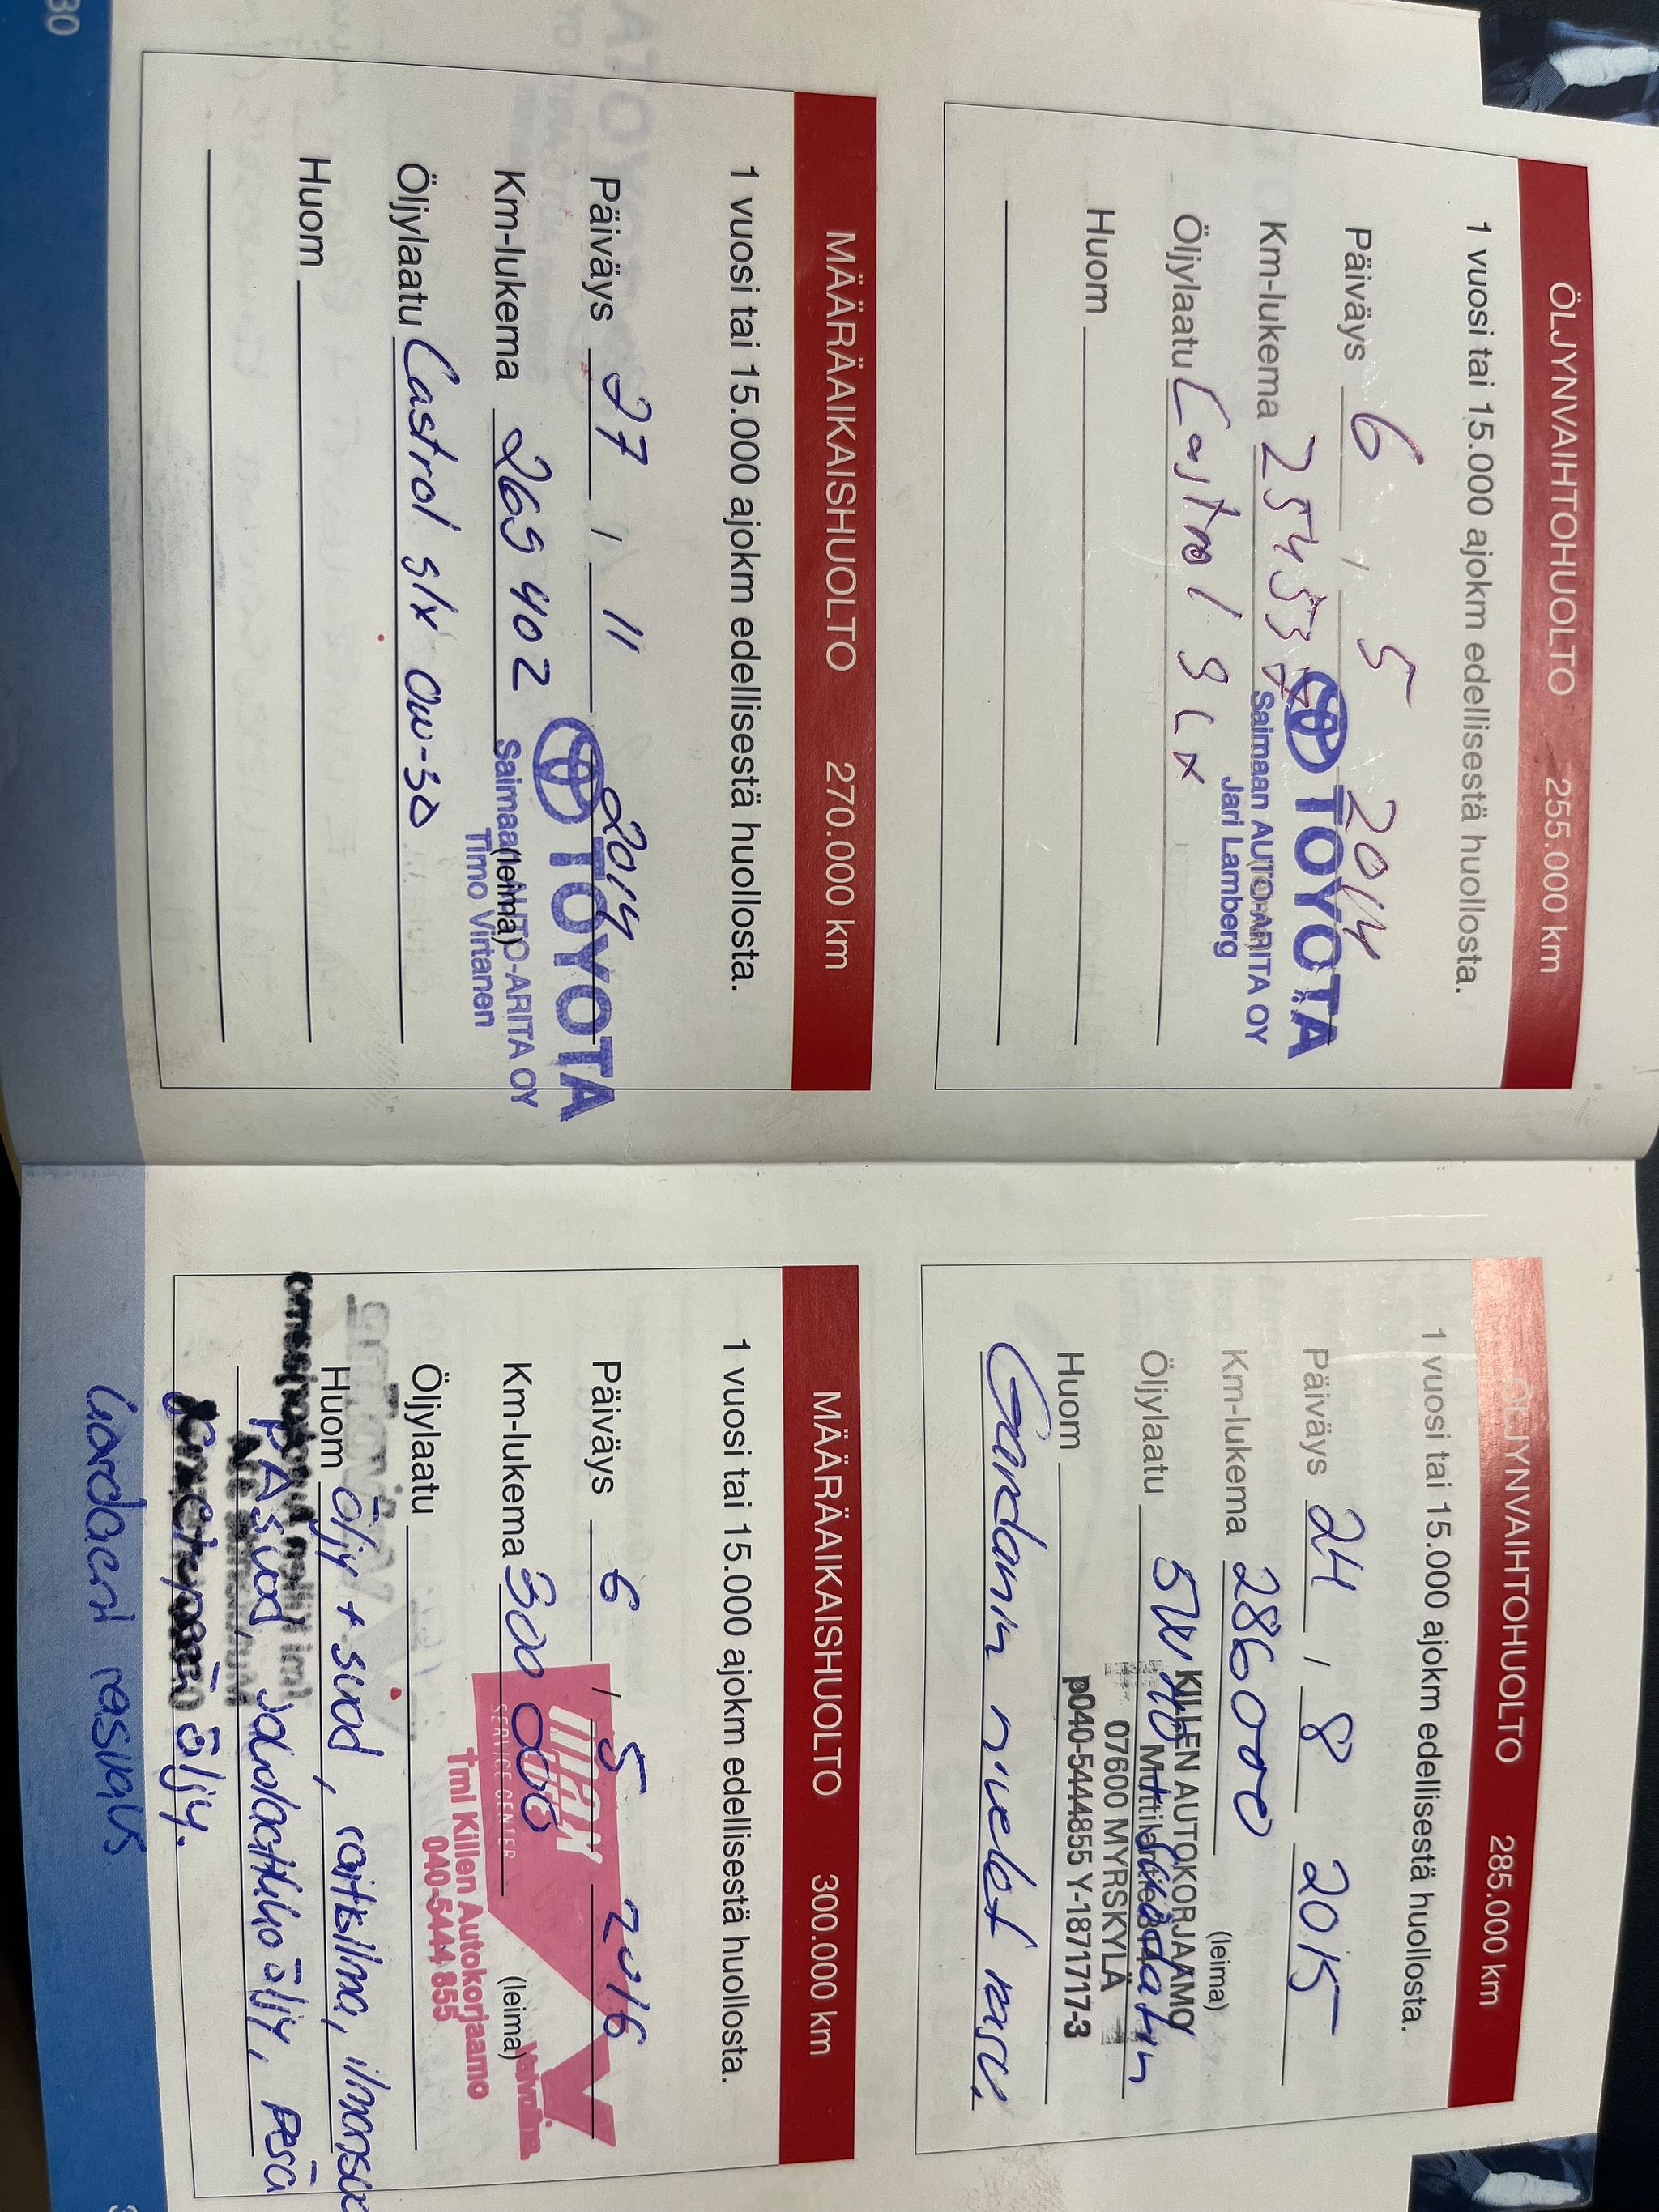 ÖLJYNVAIHTOHUOLTO 255.000 km
1 vuosi tai 15.000 ajokm edellisestä huollosta.
Päiväys 6 / 5 2014
TOYOTA
Km-lukema
Saimaan AUTO-ARITA OY
Jari Lamberg
Öljylaatu Castrol SLX
Huom
MÄÄRÄAIKAISHUOLTO 270.000 km
1 vuosi tai 15.000 ajokm edellisestä huollosta.
Päiväys 27 / 11 2014
TOYOTA
Km-lukema 269 402
Saimaan AUTO-ARITA OY
(leima)
Timo Virtanen
Öljylaatu Castrol slx 0w-30
Huom
30
ÖLJYNVAIHTOHUOLTO 285.000 km
1 vuosi tai 15.000 ajokm edellisestä huollosta.
Päiväys 24 / 8 2015
Km-lukema 286000
(leima)
KILLEN AUTOKORJAAMO
Öljylaatu 5W40
07600 MYRSKYLÄ
p040-5444855 Y-1871717-3
Huom
Gardanin nivelet rasv.
MÄÄRÄAIKAISHUOLTO 300.000 km
1 vuosi tai 15.000 ajokm edellisestä huollosta.
Päiväys 6 / 5 2016
Km-lukema 300 000
SERVICE CENTER
(leima)
Valvoline
Tmi Killen Autokorjaamo
040-5444 855
Öljylaatu
Huom öljy + suod, raitisilma, ilmansuo
PA suod, Jakolaatikko öljy, Perä
öljy.